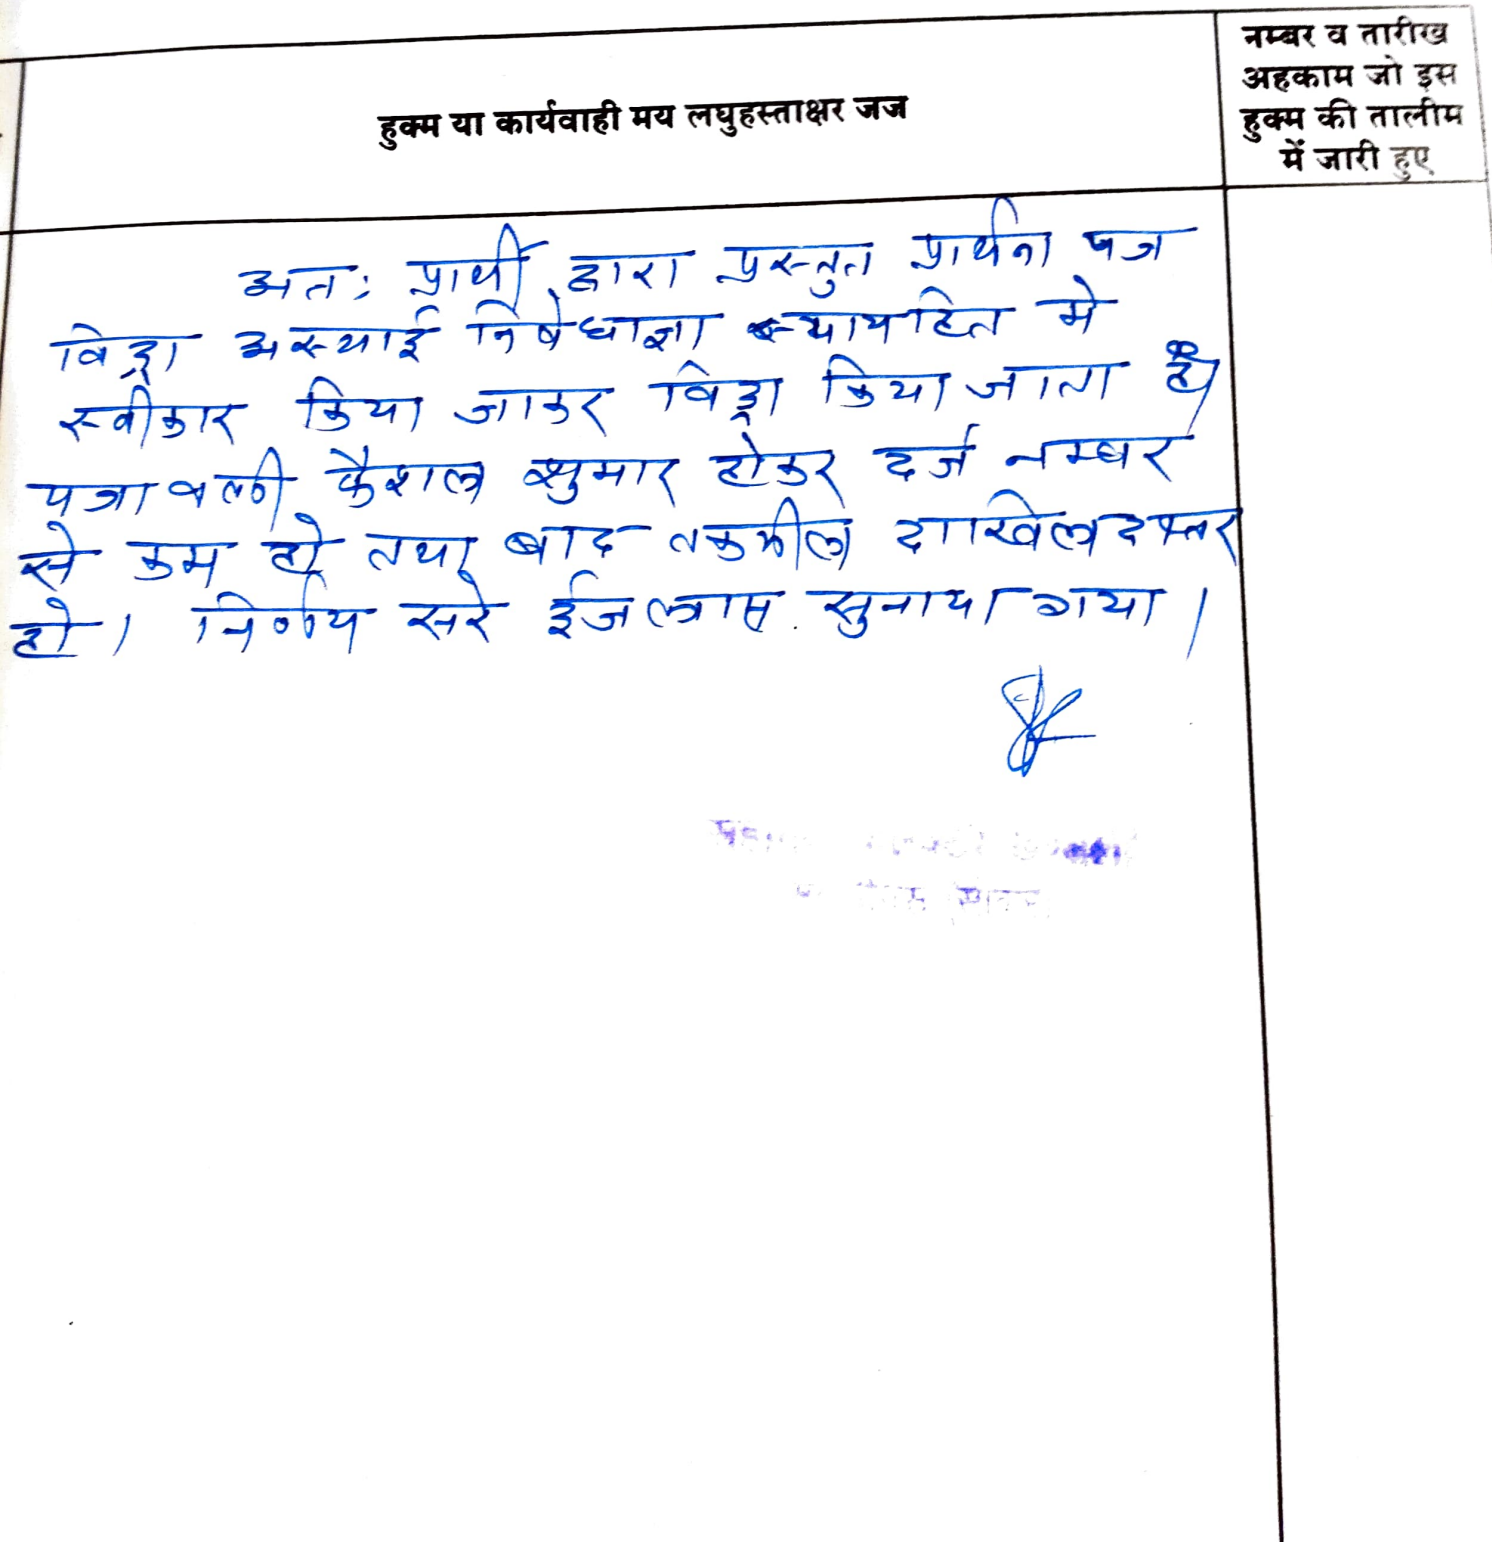 हुक्म या कार्यवाही मय लघुहस्ताक्षर जज
नम्बर व तारीख
अहकाम जो इस
हुक्म की तालीम
में जारी हुए
अतः प्रार्थी द्वारा प्रस्तुत प्रार्थना पत्र
विड्रा अस्थाई निषेधाज्ञा न्यायहित मे
स्वीकार किया जाकर विड्रा किया जाता है
पत्रावली फैशल शुमार होकर दर्ज नम्बर
से कम हो तथा बाद तकमील दाखिल दफ्तर
हो। निर्णय सरे ईजलास सुनाया गया।